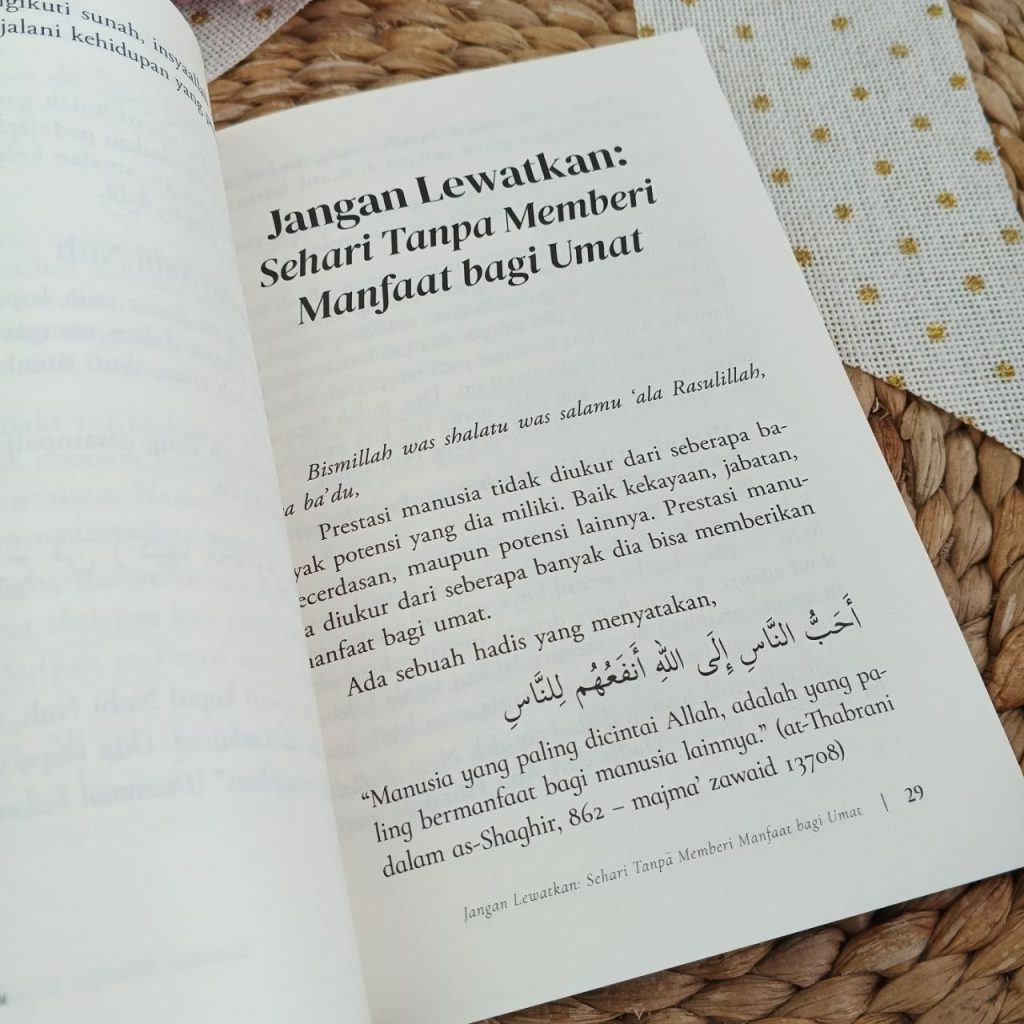 sunah, insyaallah
jalani kehidupan yang
Jangan Lewatkan:
Sehari Tanpa Memberi
Manfaat bagi Umat
Bismillah was shalatu was salamu ‘ala Rasulillah,
ba’du,
Prestasi manusia tidak diukur dari seberapa ba-
yak potensi yang dia miliki. Baik kekayaan, jabatan,
ecerdasan, maupun potensi lainnya. Prestasi manu-
a diukur dari seberapa banyak dia bisa memberikan
anfaat bagi umat.
Ada sebuah hadis yang menyatakan,
أَحَبُّ النَّاسِ إِلَى اللهِ أَنفَعُهُم لِلنَّاسِ
“Manusia yang paling dicintai Allah, adalah yang pa-
ling bermanfaat bagi manusia lainnya.” (at-Thabrani
dalam as-Shaghir, 862 – majma’ zawaid 13708)
Jangan Lewatkan: Sehari Tanpa Memberi Manfaat bagi Umat | 29